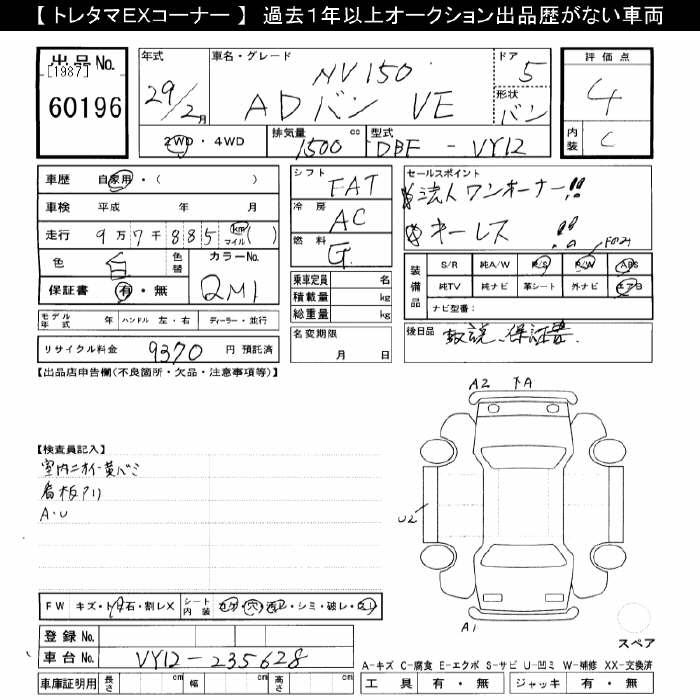 【 トレタマEXコーナー 】 過去１年以上オークション出品歴がない車両
出品No.
[1987]
60196
年式
29/2月
車名・グレード
NV150
ADバン VE
ドア
5
形状
バン
評価点
4
内装
C
2WD・4WD
排気量
1500 cc
型式
DBF - VY12
車歴 自家用・( )
車検 平成 年 月
走行 9万7千885 km マイル ( )
色 白 色替
カラーNo.
QM1
保証書 有・無
モデル年式 年 ハンドル 左・右 ディーラー・並行
リサイクル料金 9370 円 預託済
シフト FAT
冷房 AC
燃料 G
乗車定員 名
積載量 kg
総重量 kg
名変期限
月 日
セールスポイント
法人ワンオーナー!!
キーレス !!
装備品
S/R 純A/W P/S P/W ABS
純TV 純ナビ 革シート 外ナビ エアB
ナビ型番:
後日品 取説、保証書
【出品店申告欄(不良箇所・欠品・注意事項等)】
【検査員記入】
室内ニオイ・黄バミ
看板アリ
A・U
A2 下A
U2
A1
スペア
FW キズ・トビ石・割レX
シート内装 コゲ・穴・汚レ・シミ・破レ・スレ
登録No.
車台No. VY12-235628
車庫証明用 長さ cm 幅 cm 高さ cm
A-キズ C-腐食 E-エクボ S-サビ U-凹ミ W-補修 XX-交換済
工具 有・無 ジャッキ 有・無